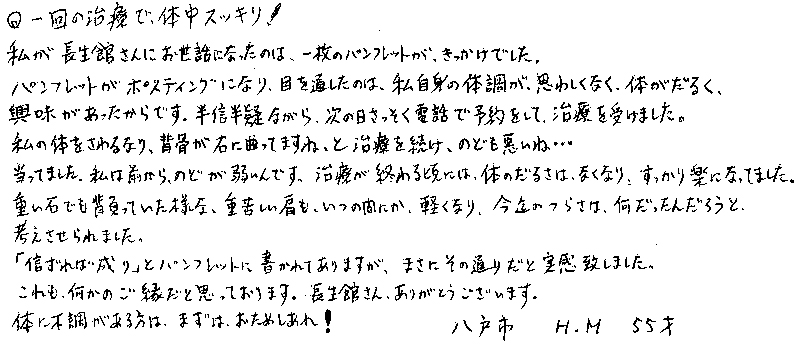 ◎一回の治療で、体中スッキリ!
私が長生館さんにお世話になったのは、一枚のパンフレットが、きっかけでした。
パンフレットがポスティングになり、目を通したのは、私自身の体調が、思わしくなく、体がだるく、
興味があったからです。半信半疑ながら、次の日さっそく電話で予約をして、治療を受けました。
私の体をさわるなり、背骨が右に曲ってますね、と治療を続け、のども悪いね…
当ってました。私は前から、のどが弱いんです。治療が終わる頃には、体のだるさは、なくなり、すっかり楽になってました。
重い石でも背負っていた様な、重苦しい肩も、いつの間にか、軽くなり、今迄のつらさは、何だったんだろうと、
考えさせられました。
「信ずれば成り」とパンフレットに書かれてありますが、まさにその通りだと実感致しました。
これも、何かのご縁だと思っております。長生館さん、ありがとうございます。
体に不調がある方は、まずは、おためしあれ!
八戸市 H.M 55才